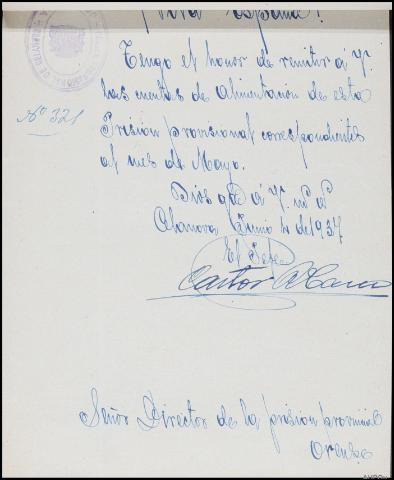 ¡Viva España!
Tengo el honor de remitir á V.
las cuentas de alimentacion de esta
Nº 321
Prision provisional correspondientes
al mes de Mayo.
Dios gde á V. ms as
Celanova Junio 4 de 1937
El Jefe
Castor
Señor Director de la prision provincial
Orense